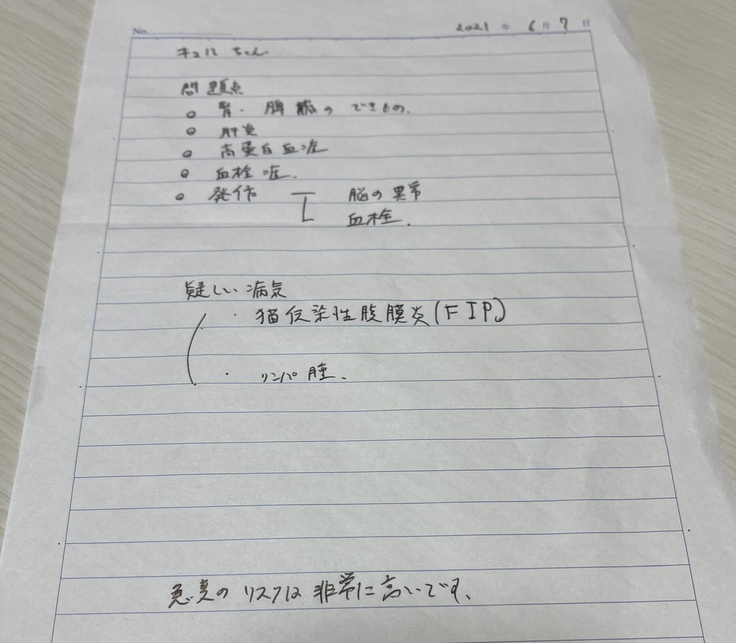 No. 2021 年 6 月 7 日
キュルちゃん
問題点
○ 腎・脾臓の できもの.
○ 肝炎
○ 高蛋白血症
○ 血栓症.
○ 発作 脳の異常
血栓.
疑しい病気
・猫伝染性腹膜炎(FIP)
・リンパ腫.
急変のリスクは非常に高いです.